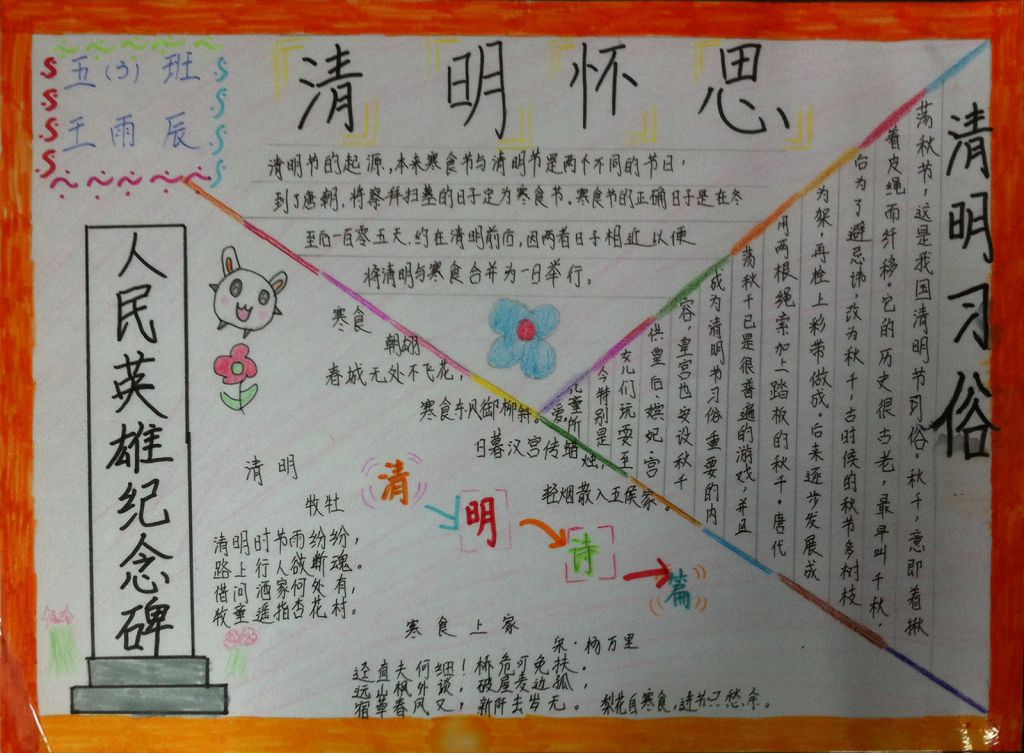 五(3)班
王雨辰
清明怀思
清明节的起源,本来寒食节与清明节是两个不同的节日,
到了唐朝,将祭拜扫墓的日子定为寒食节。寒食节的正确日子是在冬
至后一百零五天,约在清明前后,因两者日子相近以便
将清明与寒食合并为一日举行。
清明习俗
荡秋节,这是我国清明节习俗。秋千,意即着揪
着皮绳而纤移。它的历史很古老,最早叫千秋,
后为了避忌讳,改为秋千,古时候的秋节多树枝
为架,再栓上彩带做成。后来逐步发展成
用两根绳索加上踏板的秋千。唐代
荡秋千已是很普遍的游戏,并且
成为清明节习俗重要的内
容,皇宫也安设秋千
供皇后、嫔妃、宫
女儿们玩耍至
今特别是
儿童所
爱。
人民英雄纪念碑
寒食
春城无处不飞花,
寒食东风御柳斜。
日暮汉宫传蜡烛,
轻烟散入五侯家。
清明诗篇
清明
牧牡
清明时节雨纷纷,
路上行人欲断魂。
借问酒家何处有,
牧童遥指杏花村。
寒食上家
杨万里
还直夫何细!桥危可免扶。
远山枫外谈,破屋麦边孤,
宿草春风又,新阡去岁无。梨花自寒食,进节只愁余。